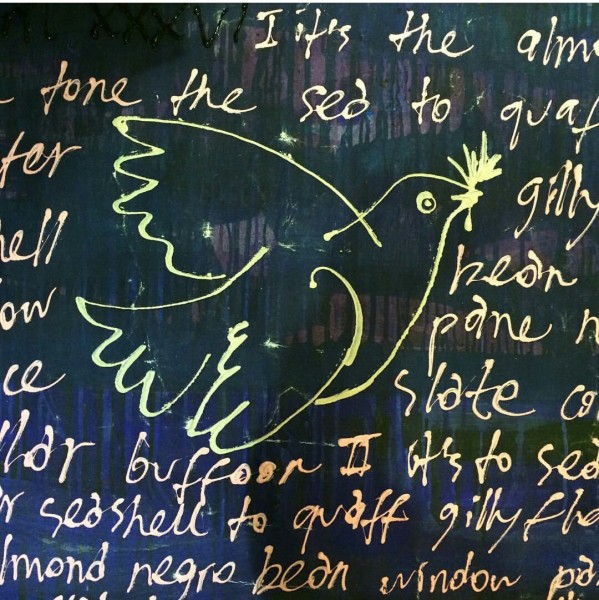 XXXVI
I it's the almo
tone the sed to quaf
ter
gilly
hell
bean
ow
pane n
ce
slate co
llar buffoon II it's to sed
r seashell to quaff gillyflo
lmond negro bean window pan